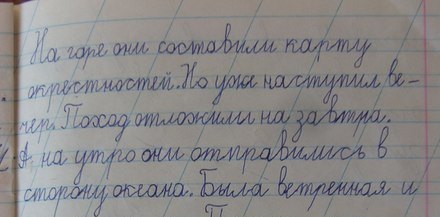 На горе они составили карту
окрестностей. Но уже наступил ве-
чер. Поход отложили на завтра.
А на утро они отправились в
сторону океана. Была ветренная и